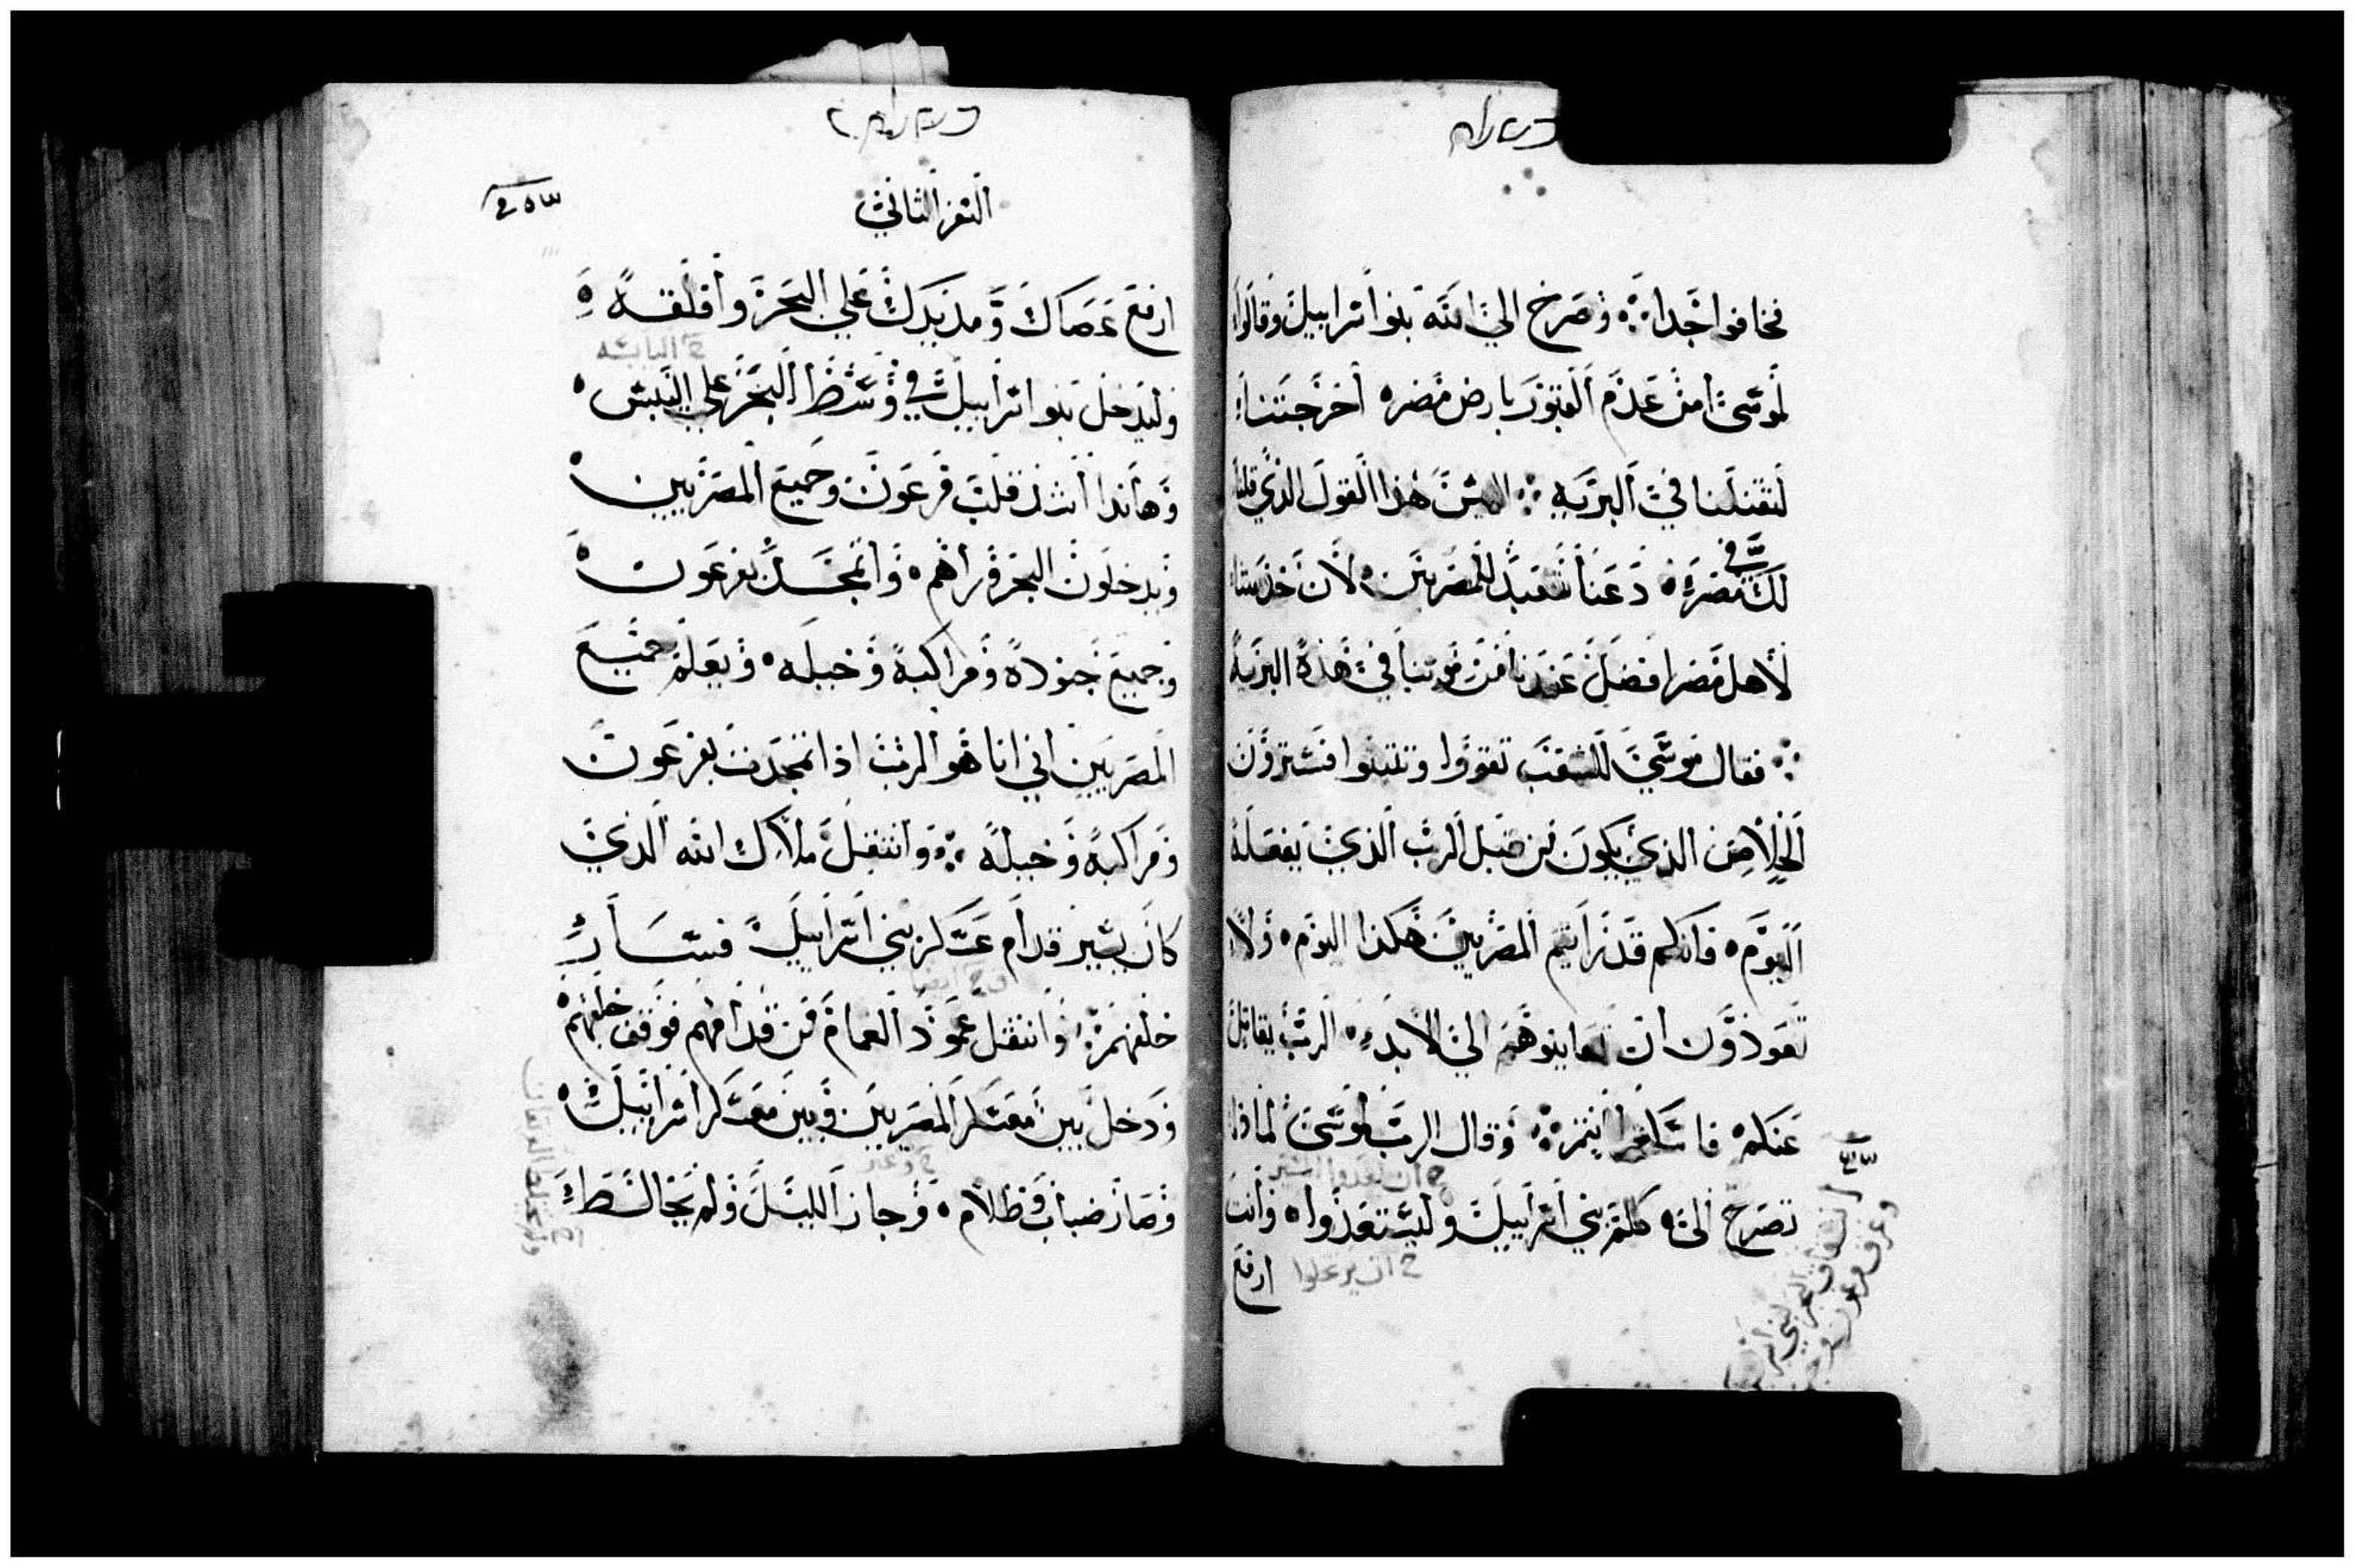 فخافوا جدا ۞ وصرخ الي الله بنوا اسراييل وقالوا
لموسى امن عدم القبور بارض مصر ٥ اخرجتنا
لتقتلنا في البريه ۞ اليس هذا القول الذي قلنا
لك في مصر ٥ دعنا نتعبد للمصريين ٥ لان خدمتنا
لاهل مصر افضل عندنا من موتنا في هذه البريه
۞ فقال موسي للشعب تقووا وتثبتوا فسترون
الخلاص الذي يكون من قبل الرب الذي يفعله
اليوم ٥ فانكم قد رايتم المصريين هكذا اليوم ٥ ولا
تعودون ان تعاينوهم الي الابد ٥ الرب يقاتل
عنكم فاسكتوا انتم ۞ وقال الرب لموسى لماذا
تصرخ الي ٥ كلم بني اسراييل وليستعدوا ٥ وانت
خ ان يرحلوا
ارفع
السفر الثاني
ارفع عصاك ومد يدك علي البحر وافلقه ٥
خ اليابسه
وليدخل بنوا اسراييل في وسط البحر علي اليبس ٥
وهانذا اشدد قلب فرعون وجميع المصريين ٥
ويدخلون البحر وراهم ٥ واتمجد بفرعون ٥
وجميع جنوده ومراكبه وخيله ٥ ويعلم جميع
المصريين اني انا هو الرب اذا تمجدت بفرعون
ومراكبه وخيله ۞ وانتقل ملاك الله الذي
كان يسير قدام عسكر بني اسراييل فسار
خلفهم ۞ وانتقل عمود الغمام من قدامهم فوقف خلفهم ٥
ودخل بين معسكر المصريين وبين معسكر اسراييل ٥
وصار ضباب وظلام ٥ وجاز الليل ولم يختلط